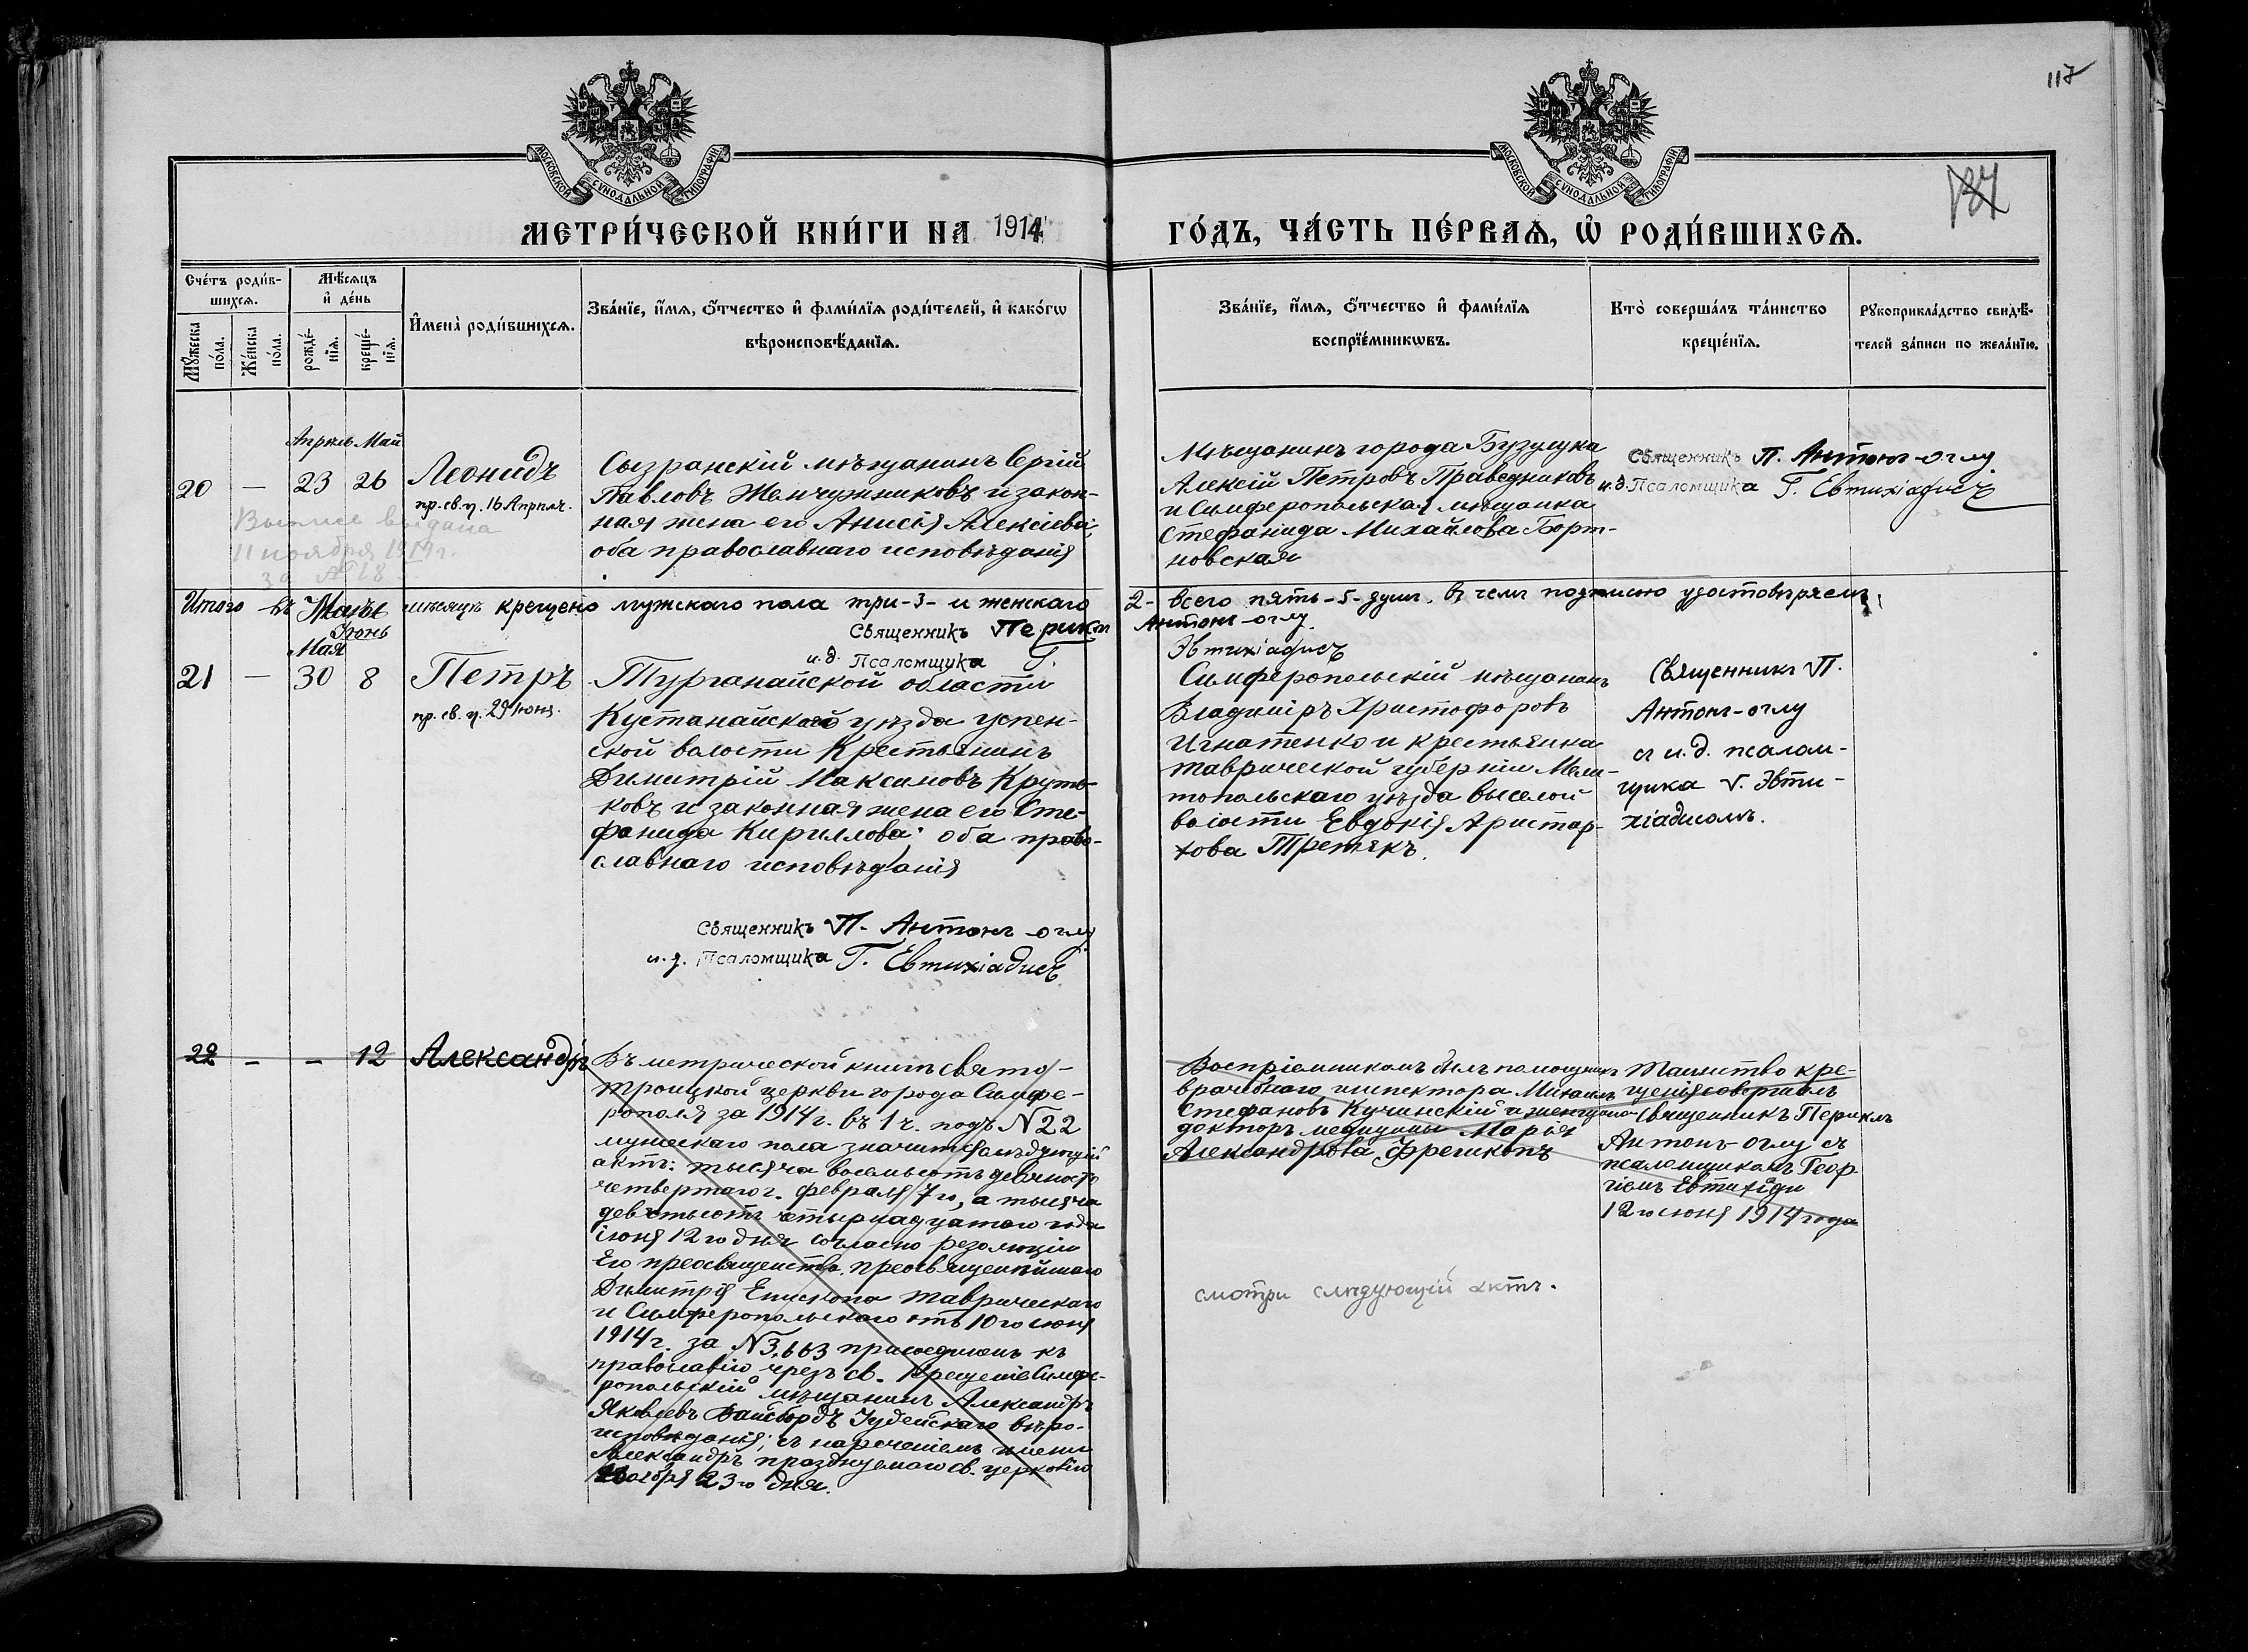 117
МОСКОВСКОЙ СѴНОДАЛЬНОЙ ТИПОГРАФІИ
МОСКОВСКОЙ СѴНОДАЛЬНОЙ ТИПОГРАФІИ
МЕТРИ́ЧЕСКОЙ КНИ́ГИ НА 1914
ГО́ДЪ, ЧА́СТЬ ПЕ́РВАѦ, Ѡ҆ РОДИ́ВШИХСѦ.
Сче́тъ роди́в-
шихсѧ.
Мꙋ́жеска
по́ла.
Же́нска
по́ла.
Мѣ́сѧцъ
и҆ де́нь
рожде́-
нїѧ.
креще́-
нїѧ.
И҆мена̀ роди́вшихсѧ.
Зва́нїе, и҆́мѧ, ѻ҆́тчество и҆ фами́лїѧ роди́телей, и҆ како́гѡ
вѣроисповѣ́данїѧ.
Зва́нїе, и҆́мѧ, ѻ҆́тчество и҆ фами́лїѧ
воспрїе́мникѡвъ.
Кто̀ соверша́лъ та́инство
креще́нїѧ.
Рꙋкоприкла́дство свидѣ́-
телей за́писи по жела́нїю.
Апрѣль Май
20 — 23 26
Леонидъ
пр. св. ц. 16 Апрѣля.
Выпись выдана
11 ноября 1914 г.
за № 18
Сызранскій мѣщанинъ Сергій
Павловъ Жемчужниковъ и закон-
ная жена его Анисія Алексіева;
оба православнаго исповѣданія
Мѣщанинъ города Бузулука
Алексій Петровъ Праведниковъ
и Симферопольская мѣщанка
Стефанида Михайлова Борт-
новская
Священникъ П. Антонъ-оглу
и.д. Псаломщика Г. Евтихіадисъ
Итого въ Маѣ мѣсяцѣ крещено мужскаго пола три-3- и женскаго
2- всего пять-5- душъ, въ чемъ подписью удостовѣряемъ:
Священникъ Периклъ
Антонъ-оглу.
и.д. Псаломщика Г.
Эвтихіадисъ
Мая Іюнь
21 — 30 8
Петръ
пр. св. ц. 29 Іюня.
Тургайской области
Кустанайскаго уѣзда успен-
ской волости Крестьянинъ
Димитрій Максимовъ Крути-
ковъ и законная жена его Сте-
фанида Кириллова; оба право-
славнаго исповѣданія
Священникъ П. Антонъ-оглу
и.д. Псаломщика Г. Евтихіадисъ
Симферопольскій мѣщанинъ
Владиміръ Христофоровъ
Игнатенко и крестьянка
таврической губерніи Мели-
топольскаго уѣзда Веселой
волости Евдокія Аристар-
хова Третякъ.
Священникъ П.
Антонъ-оглу
съ и.д. псалом-
щика Г. Эвти-
хіадисомъ.
22 — — 12
Александръ
Въ метрической книгѣ Свято-
Троицкой церкви города Симфе-
рополя за 1914 г. въ 1 ч. подъ № 22
мужескаго пола значится слѣдующій
актъ: тысяча восемьсотъ девяносто
четвертаго г. февраля 7 го, а тысяча
девятьсотъ четырнадцатаго года
іюня 12 го дня согласно резолюціи
Его преосвященства, преосвященнѣйшаго
Димитрія Епископа таврическаго
и Симферопольскаго отъ 10 го іюня
1914 г. за № 3,663 присоединенъ къ
православію чрезъ св. Крещеніе Симфе-
ропольскій мѣщанинъ Александръ
Яковлевъ Вайсбордъ Іудейскаго вѣро-
исповѣданія, съ нареченіемъ имени
Александръ празднуемаго св. церковію
ноября 23 го дня.
Воспріемникомъ былъ помощникъ
врачебнаго инспектора Михаилъ
Стефановъ Кучинскій и женщина
докторъ медицины Марія
Александрова Фрешкопъ
смотри слѣдующій актъ.
Таинство кре-
щенія совершалъ
Священникъ Периклъ
Антонъ-оглу съ
псаломщикомъ Геор-
гіемъ Евтихіди
12 го іюня 1914 года